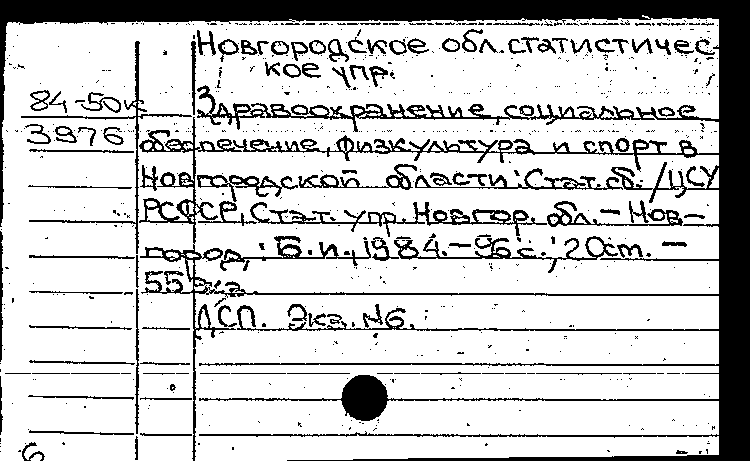 Новгородское обл. статистичес-
кое упр.
84-50к
Здравоохранение, социальное
3976
обеспечение, физкультура и спорт в
Новгородской области: Стат. сб. / ЦСУ
РСФСР, Стат. упр. Новгор. обл. – Нов-
город, : Б. и., 1984. – 96 с.; 20 см. –
55 экз.
ДСП. Экз. №6.
6